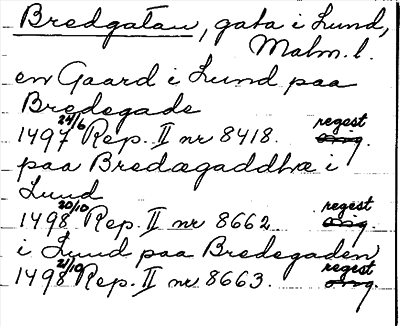 Bredgatan, gata i Lund,
Malm. l.
en Gaard i Lund paa
Bredegade
1497 24/6 Rep. II nr 8418. regest orig.
paa Bredægaddhæ i
Lund
1498 20/10 Rep. II nr 8662 regest orig.
i Lund paa Bredegaden
1498 21/10 Rep. II nr 8663. regest orig.